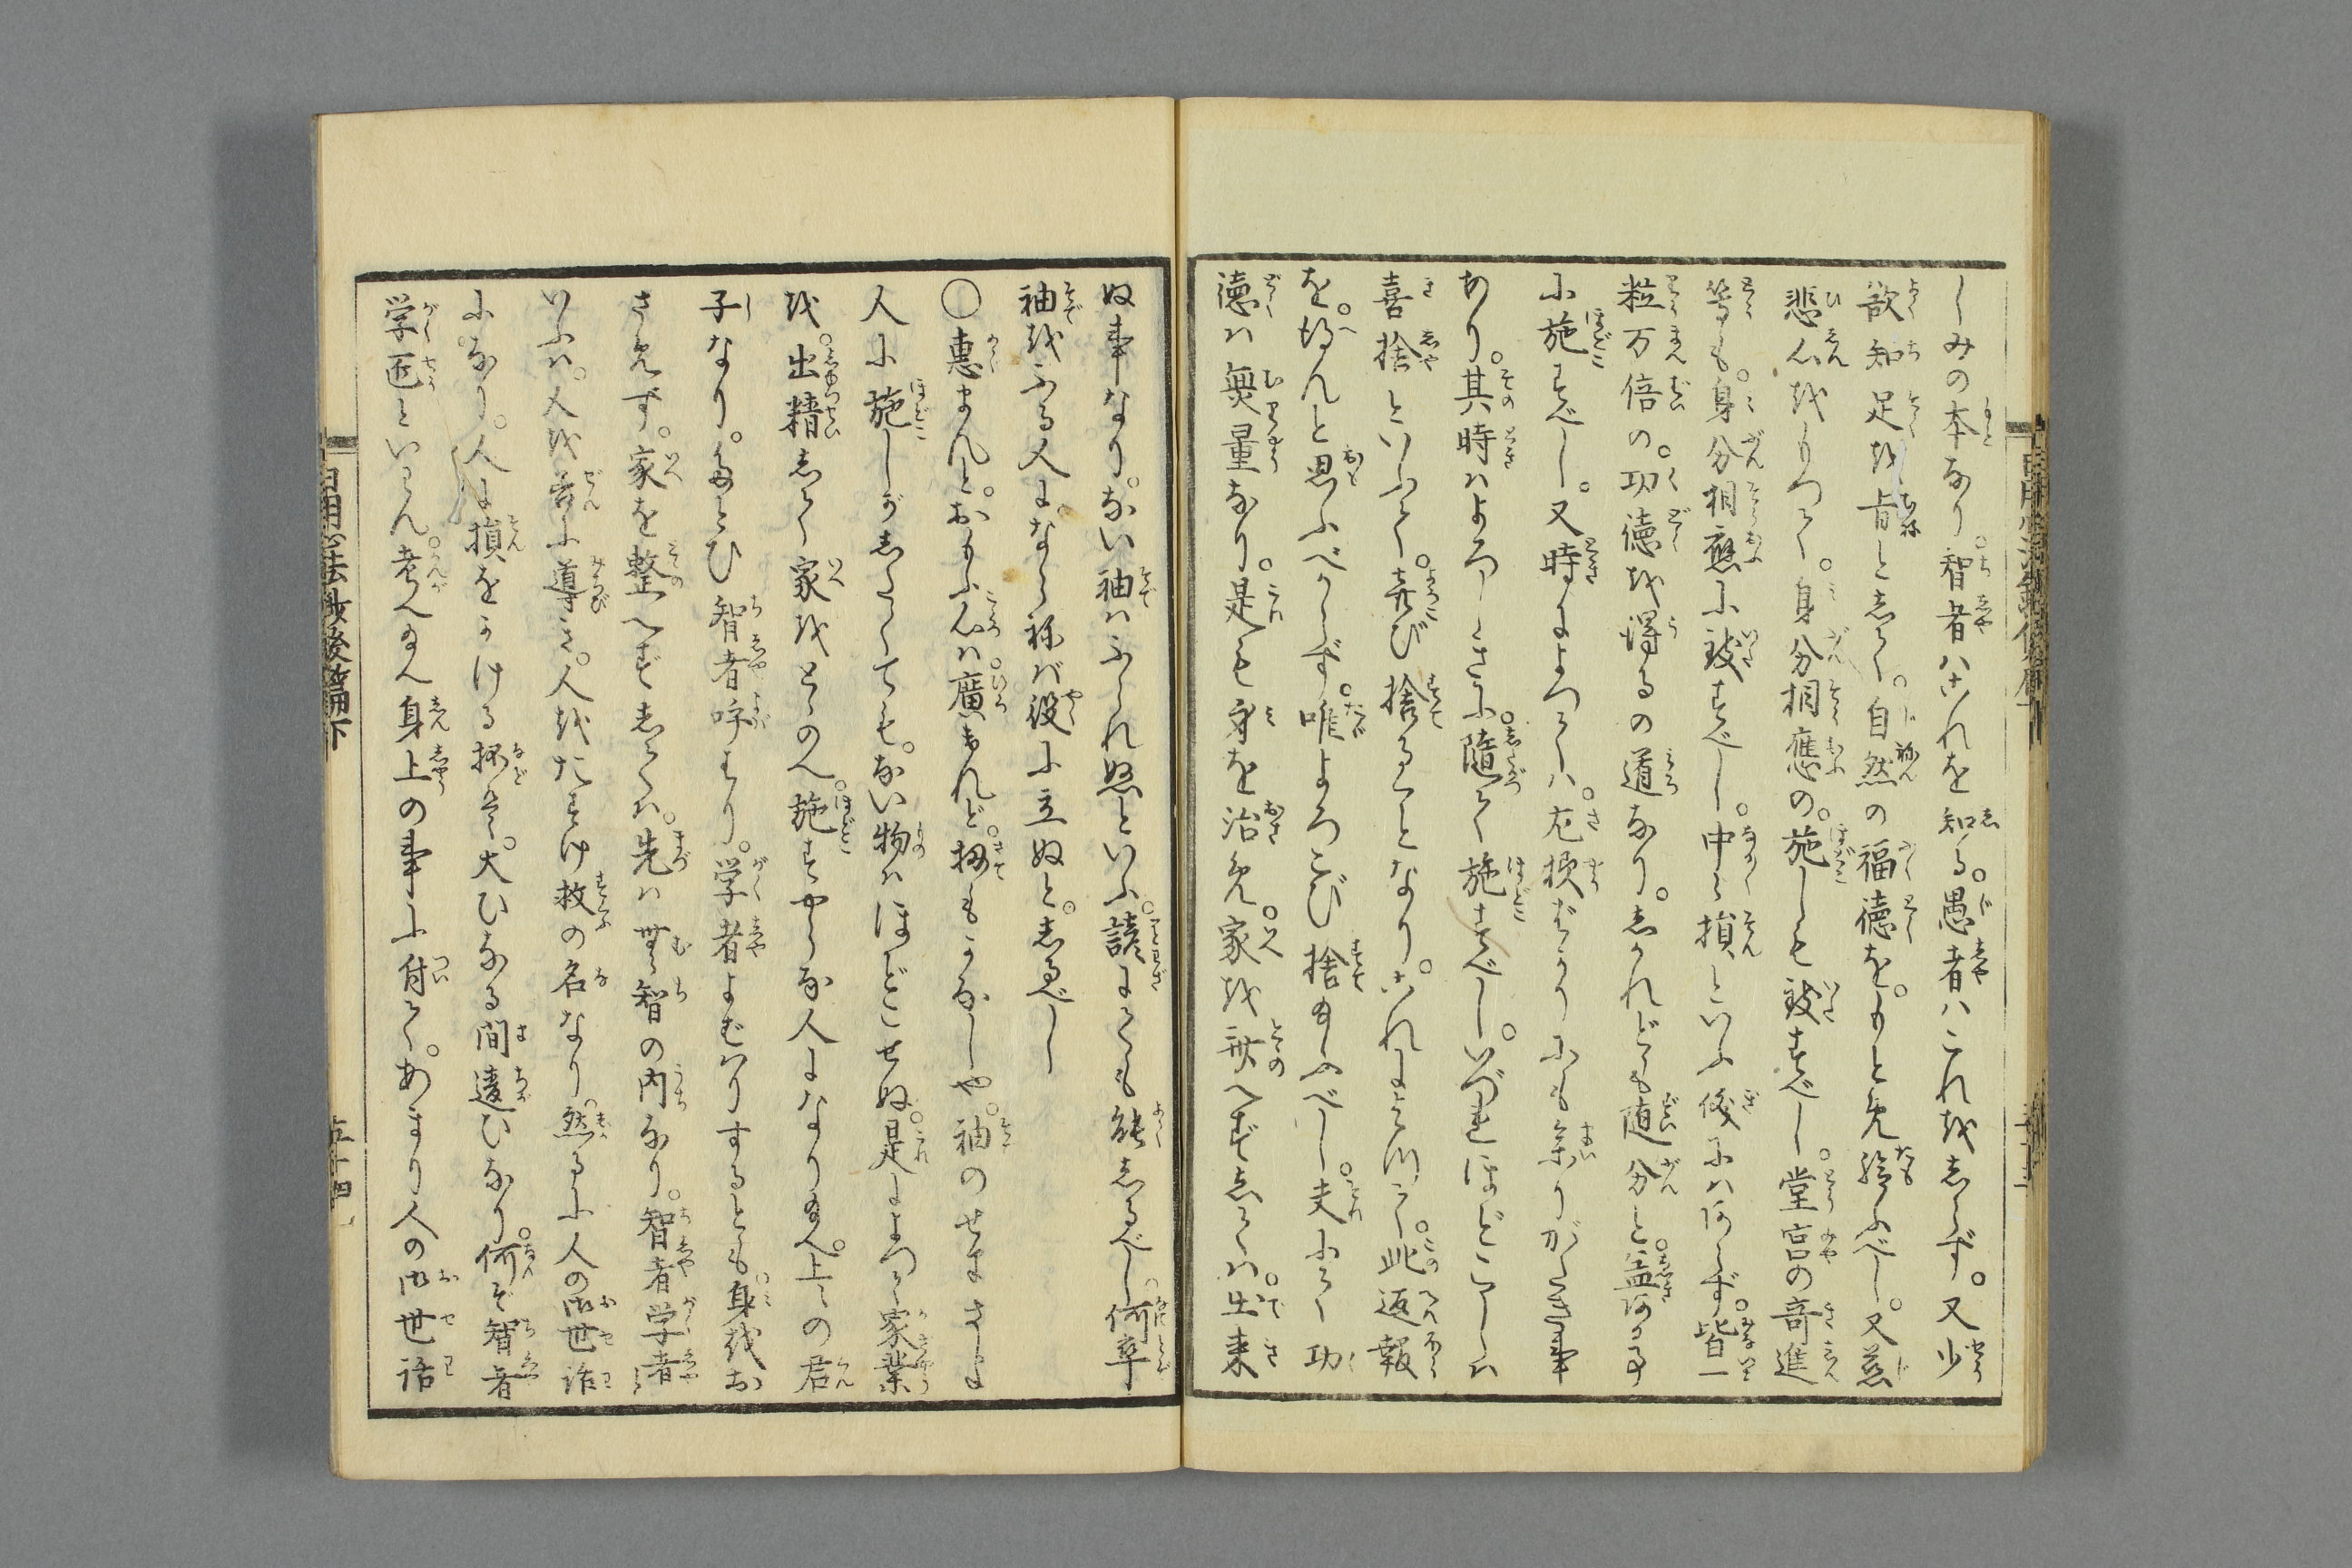 しみの本なり。智者ハこれを知る。愚者ハこれをしらず。又少
欲知足を旨として。自然の福徳を。もとめ給ふべし。又慈
悲心をもつて。身分相應の。施しも致すべし。堂宮の奇進
等も。身分相應に致すべし。中々損といふ儀にハあらず。皆一
粒万倍の。功徳を得るの道なり。しかれども随分と。益ある事
に施すべし。又時によつてハ。左様ばかりにも参りがたき事
あり。其時ハよろしきに。随て施すべし。いづれほどこしハ
喜捨といふて。喜び捨ることなり。これによつて。此返報
を。得んと思ふべからず。唯よろこび捨給ふべし。夫にて功
徳ハ無量なり。是も身を治め。家を斉へずしてハ。出来
ぬ事なり。ない袖ハふられぬといふ。諺にても能しるべし。何卒
袖をふる人にならねバ役に立ぬと。しるべし
〇惠まんと。おもふ心ハ。廣けれど。扨もかなしや。袖のせまさよ
人に施しがしたくても。ない物ハほどこせぬ。是によつて家業
を。出精して家をとゝのへ。施すやうな人になり給へ。上々の君
子なり。たとひ智者呼はり。学者よむハりするとも。身をお
さめず。家を整へずしてハ。先ハ無智の内なり。智者学者と
いふハ。人を善に導き。人をたすけ救の名なり。然るに人の御世話
に。なり。人に損をかける抔とハ。大ひなる間違ひなり。何ぞ智者
学匠といわん。考へ給へ身上の事に付て。あまり人の御世話
日用心法鈔後篇下
五十四